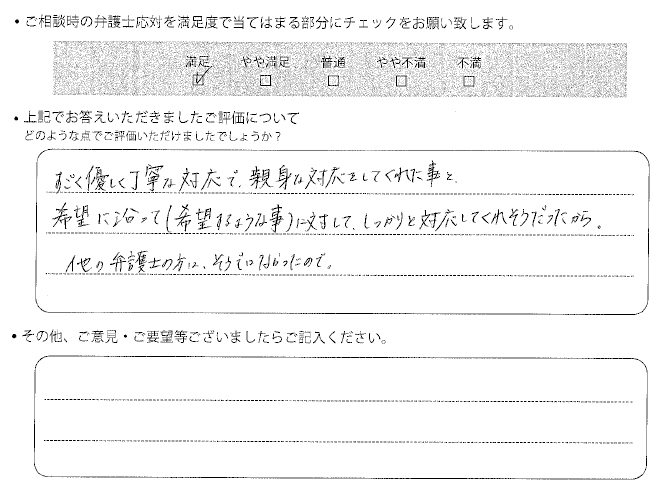 ・ご相談時の弁護士応対を満足度で当てはまる部分にチェックをお願い致します。
満足 やや満足 普通 やや不満 不満
☑ □ □ □ □
・上記でお答えいただきましたご評価について
どのような点でご評価いただけましたでしょうか？
すごく優しく丁寧な対応で、親身な対応をしてくれた事と、
希望に沿って(希望するような事)に対して、しっかりと対応してくれそうだったから。
他の弁護士の方は、そうではなかったので。
・その他、ご意見・ご要望等ございましたらご記入ください。